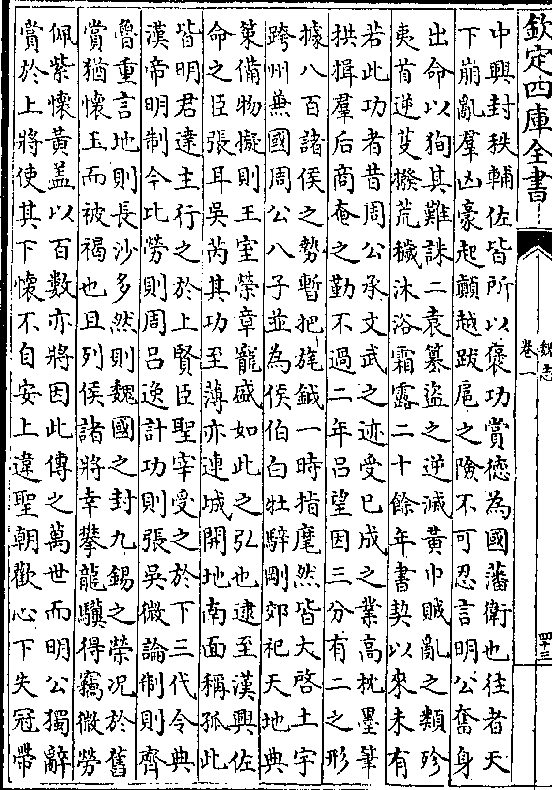 欽定四庫全書
魏志
卷一
四十三
中興封秩輔佐皆所以褒功賞德為國藩衛也往者天
下崩亂羣凶豪起顛越跋扈之險不可忍言明公奮身
出命以狥其難誅二袁篡盜之逆滅黃巾賊亂之類殄
夷首逆芟撥荒穢沐浴霜露二十餘年書契以來未有
若此功者昔周公承文武之迹受已成之業高枕墨筆
拱揖羣后商奄之勤不過二年呂望因三分有二之形
據八百諸侯之勢暫把旄鉞一時指麾然皆大啓土宇
跨州兼國周公八子並為侯伯白牡騂剛郊祀天地典
策備物擬則王室榮章寵盛如此之弘也逮至漢興佐
命之臣張耳吳芮其功至薄亦連城開地南面稱孤此
皆明君達主行之於上賢臣聖宰受之於下三代令典
漢帝明制今比勞則周呂逸計功則張吳微論制則齊
魯重言地則長沙多然則魏國之封九錫之榮况於舊
賞猶懷玉而被褐也且列侯諸將幸攀龍驥得竊微勞
佩紫懷黃盖以百數亦將因此傳之萬世而明公獨辭
賞於上將使其下懷不自安上違聖朝歡心下失冠帶